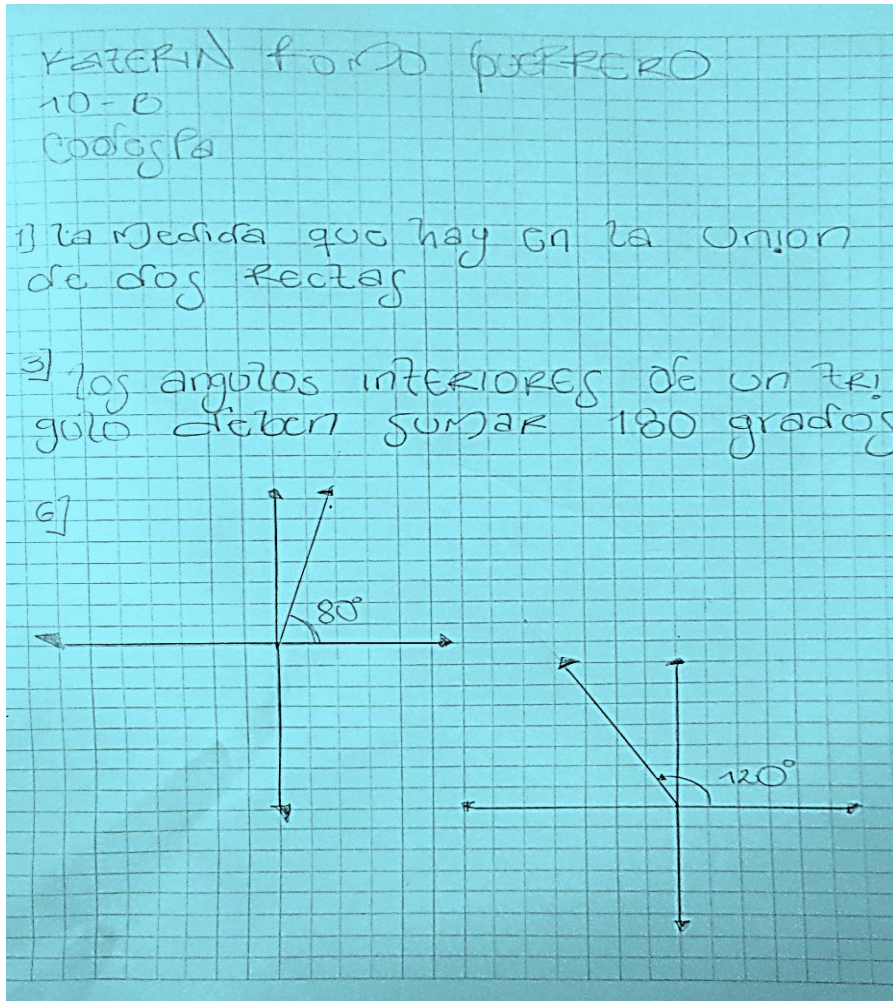 KATERIN
10-B
1] la medida que hay en la union
de dos Rectas
3] los angulos inteRioRes de un tRi
gulo deben sumaR 180 grados
6]
80°
120°